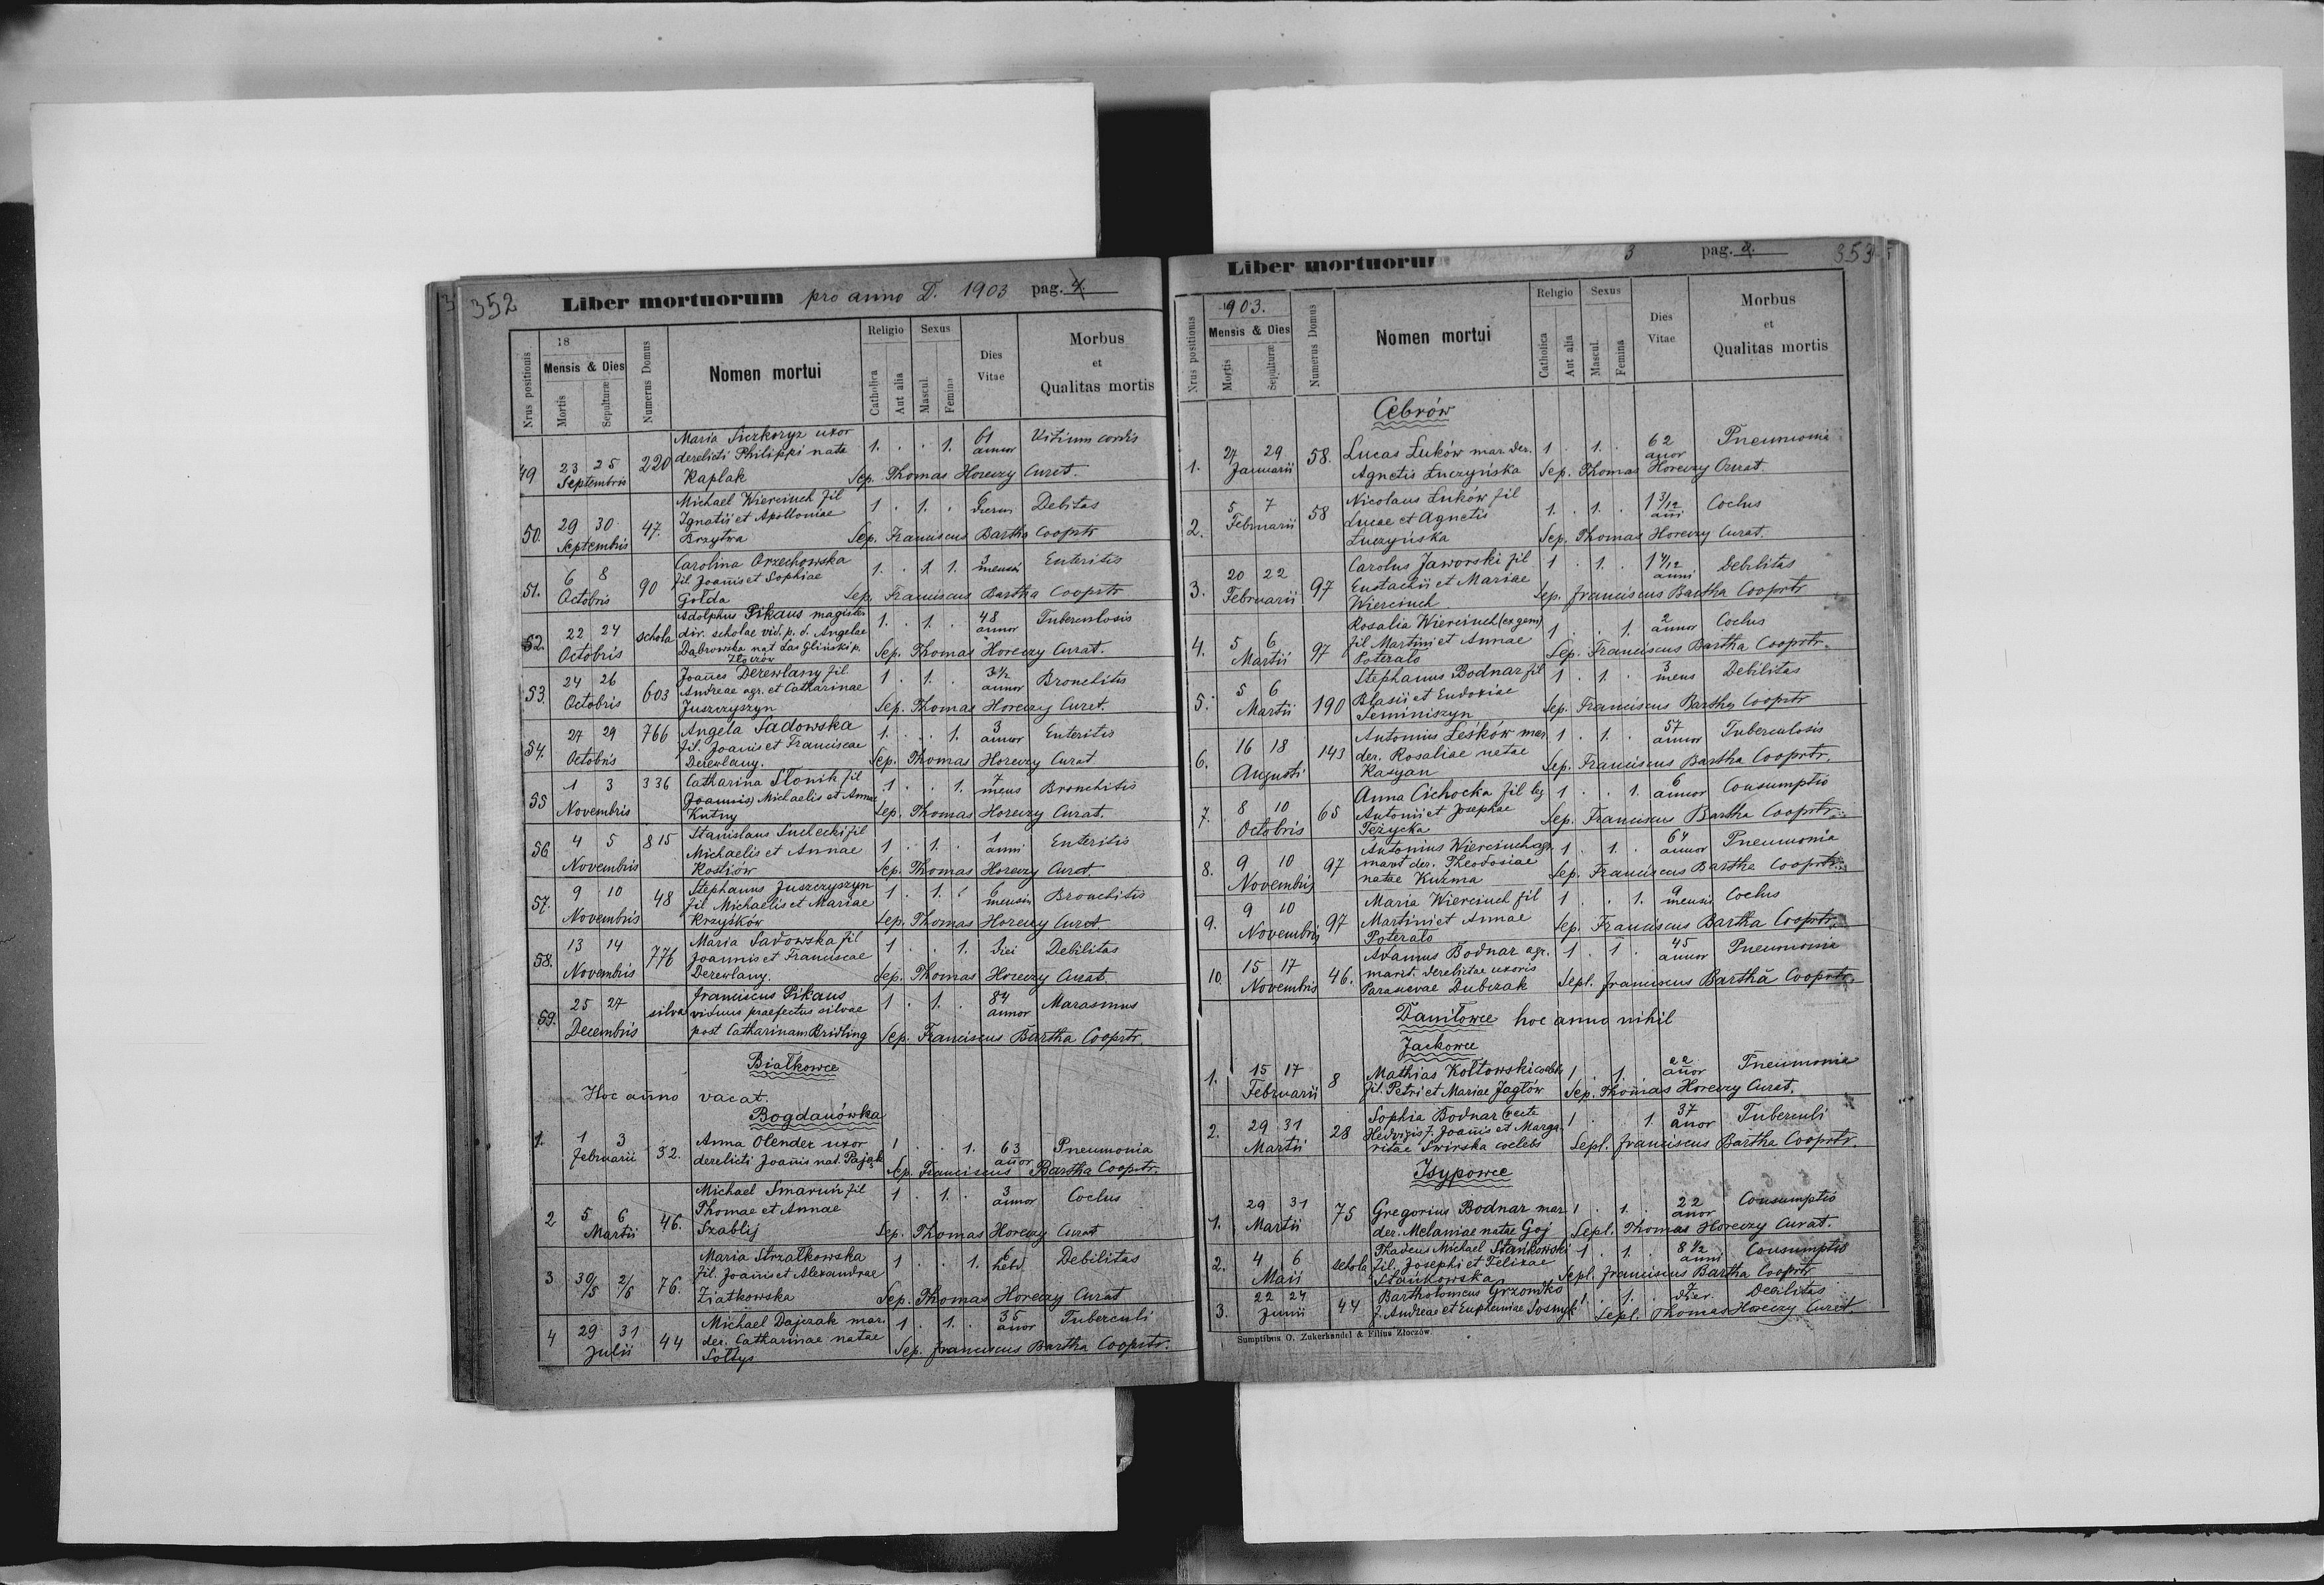 352
Liber mortuorum pro anno D. 1903 pag. 4.
Nrus positionis
18
Mensis & Dies
Mortis
Sepulturæ
Numerus Domus
Nomen mortui
Religio
Catholica
Aut alia
Sexus
Mascul.
Femina
Dies
Vitae
Morbus
et
Qualitas mortis
Maria Siczkoryz uxor 1. . . 1. 61 Vitium cordis
49 23 25 220 derelicti Philippi nata annor
Septembris Kaplak Sep. Thomas Horeczy Curat.
Michael Wierciuch fil 1 . 1. . 6 Debitas
50. 29 30 47. Ignatii et Apolloniae
Septembris Brzytwa Sep. Franciscus Bartha Cooprtr
Carolina Orzechowska 1. . 1 1. 3 Enteritis
51. 6 8 90 fil. Joannis et Sophiae
Octobris Gołda Sep. Franciscus Bartha Cooprtr
Adolphus Pikaus magister 1. . 1. . 48 Tuberculosis
52. 22 24 schola dir. scholae vid. p. d. Angelae annor
Octobris Dąbrowska nat Las Gliński p. Sep. Thomas Horeczy Curat.
Złoczów
Joannes Derewlany fil. 1 . 1. . 3½ Bronchitis
53. 24 26 603 Andreae agr. et Catharinae annor
Octobris Juszczyszyn Sep. Thomas Horeczy Curat.
54. 27 29 766 Angela Sadowska 1. . . 1. 3 Enteritis
Octobris fil. Joannis et Franciscae annor
Derewlany. Sep. Thomas Horeczy Curat
55 1 3 336 Catharina Słonik fil 1 . . 1. 7 Bronchitis
Novembris (Joannis) Michaelis et Annae mens
Kutny Sep. Thomas Horeczy Curat.
56 4 5 815 Stanislaus Suchecki fil 1 . 1. . 1 Enteritis
Novembris Michaelis et Annae anni
Kostiów Sep. Thomas Horeczy Curat.
57. 9 10 48 Stephanus Juszczyszyn 1 . 1. . 6 Bronchitis
Novembris fil Michaelis et Mariae mensin
Krzyśków Sep. Thomas Horeczy Curat.
58. 13 14 776 Maria Sadowska fil 1 . . 1. 1 Debilitas
Novembris Joannis et Franciscae diei
Derewlany. Sep. Thomas Horeczy Curat.
59. 25 27 silva Franciscus Pikaus 1 . 1. . 84 Marasmus
Decembris viduus praefectus silvae annor
post Catharinam Bridling Sep. Franciscus Bartha Cooprtr.
Białkowce
Hoc anno vacat.
Bogdanówka
1. 1 3 32. Anna Olender uxor 1 . . 1. 63 Pneumonia
Februarii derelicti Joannis nat. Pająk annor
Sep. Franciscus Bartha Cooprtr.
2 5 6 46. Michael Smaruń fil 1 . 1. . 3 Coclus
Martii Thomae et Annae annor
Szablij Sep. Thomas Horeczy Curat
3. 30/5 2/6 76. Maria Strzałkowska 1 . . 1. 6 Debilitas
fil. Joannis et Alexandrae hebd.
Ziatkowska Sep. Thomas Horeczy Curat
4 29 31 44 Michael Dajczak mar. 1 . 1. . 35 Tuberculi
Julii der. Catharinae natae annor
Sołtys Sep. Franciscus Bartha Cooprtr.
Liber mortuorum 3 pag. 4. 353
Nrus positionis
1903.
Mensis & Dies
Mortis
Sepulturæ
Numerus Domus
Nomen mortui
Religio
Catholica
Aut alia
Sexus
Mascul.
Femina
Dies
Vitae
Morbus
et
Qualitas mortis
Cebrów
1. 27 29 58. Lucas Łuków mar der. 1 . 1. . 62 Pneumonia
Januarii Agnetis Łuczyńska annor
Sep. Thomas Horeczy Curat.
2. 5 7 58 Nicolaus Łuków fil 1. . 1. . 1 3/12 Coclus
Februarii Lucae et Agnetis
Łuczyńska Sep. Thomas Horeczy Curat.
3. 20 22 97 Carolus Jaworski fil 1 . 1. . 1 4/12 Debilitas
Februarii Eustachii et Mariae anni
Wierciuch Sep. Franciscus Bartha Cooprtr
4. 5 6 97 Rosalia Wierciuch (ex gem) 1 . . 1. 2 Coclus
Martii fil. Martini et Annae annor
Poterało Sep. Franciscus Bartha Cooprtr.
5. 5 6 190 Stephanus Bodnar fil 1 . 1. . 3 Debilitas
Martii Blasii et Eudoxiae mens
Seminiszyn Sep. Franciscus Bartha Cooprtr
6. 16 18 143 Antonius Leśków mar. 1 . 1. . 57 Tuberculosis
Augusti der. Rosaliae natae annor
Kasyan Sep. Franciscus Bartha Cooprtr.
7. 8 10 65 Anna Cichocka fil leg 1 . . 1. 6 Consumptio
Octobris Antonii et Josephae annor
Tężycka Sep. Franciscus Bartha Cooprtr.
8. 9 10 97 Antonius Wierciuch agr. 1 . 1. . 64 Pneumonia
Novembris marit der. Theodosiae annor
natae Kuzma Sep. Franciscus Bartha Cooprtr.
9. 9 10 97 Maria Wierciuch fil 1 . . 1. 9 Coclus
Novembris Martini et Annae mensis
Poterało Sep. Franciscus Bartha Cooprtr.
10. 15 17 46. Adamus Bodnar agr. 1 . 1 . 45 Pneumonia
Novembris marit. derelictae uxoris annor
Parascevae Dubczak Sepl. Franciscus Bartha Cooprtr.
Daniłowce hoc anno nihil
Jackowce
1. 15 17 8 Mathias Kołtowski coelebs 1 . 1. . 22 Pneumonia
Februarii fil. Petri et Mariae Jagłów annor
Sep. Thomas Horeczy Curat.
2. 29 31 28 Sophia Bodnar recte 1 . . 1 37 Tuberculi
Martii Hedvigis f. Joannis et Marga annor
ritae Swirska coelebs Sepl. Franciscus Bartha Cooprtr.
Isypowce
1. 29 31 75 Gregorius Bodnar mar. 1 . 1. . 22 Consumptio
Martii der. Melaniae natae Goj annor
Sepl. Thomas Horeczy Curat.
2. 4 6 schola Thadeus Michael Stańkowski 1 . 1. . 8½ Consumptio
Maii fil. Josephi et Felixae anni
Stańkowska Sepl. Franciscus Bartha Cooprtr
3. 22 24 44 Bartholomeus Grzondko 1. Debilitas
Junii f. Andreae et Euphemiae Sosnyk
Sepl. Thomas Horeczy Curat.
Sumptibus O. Zukerkandel & Filius Złoczów